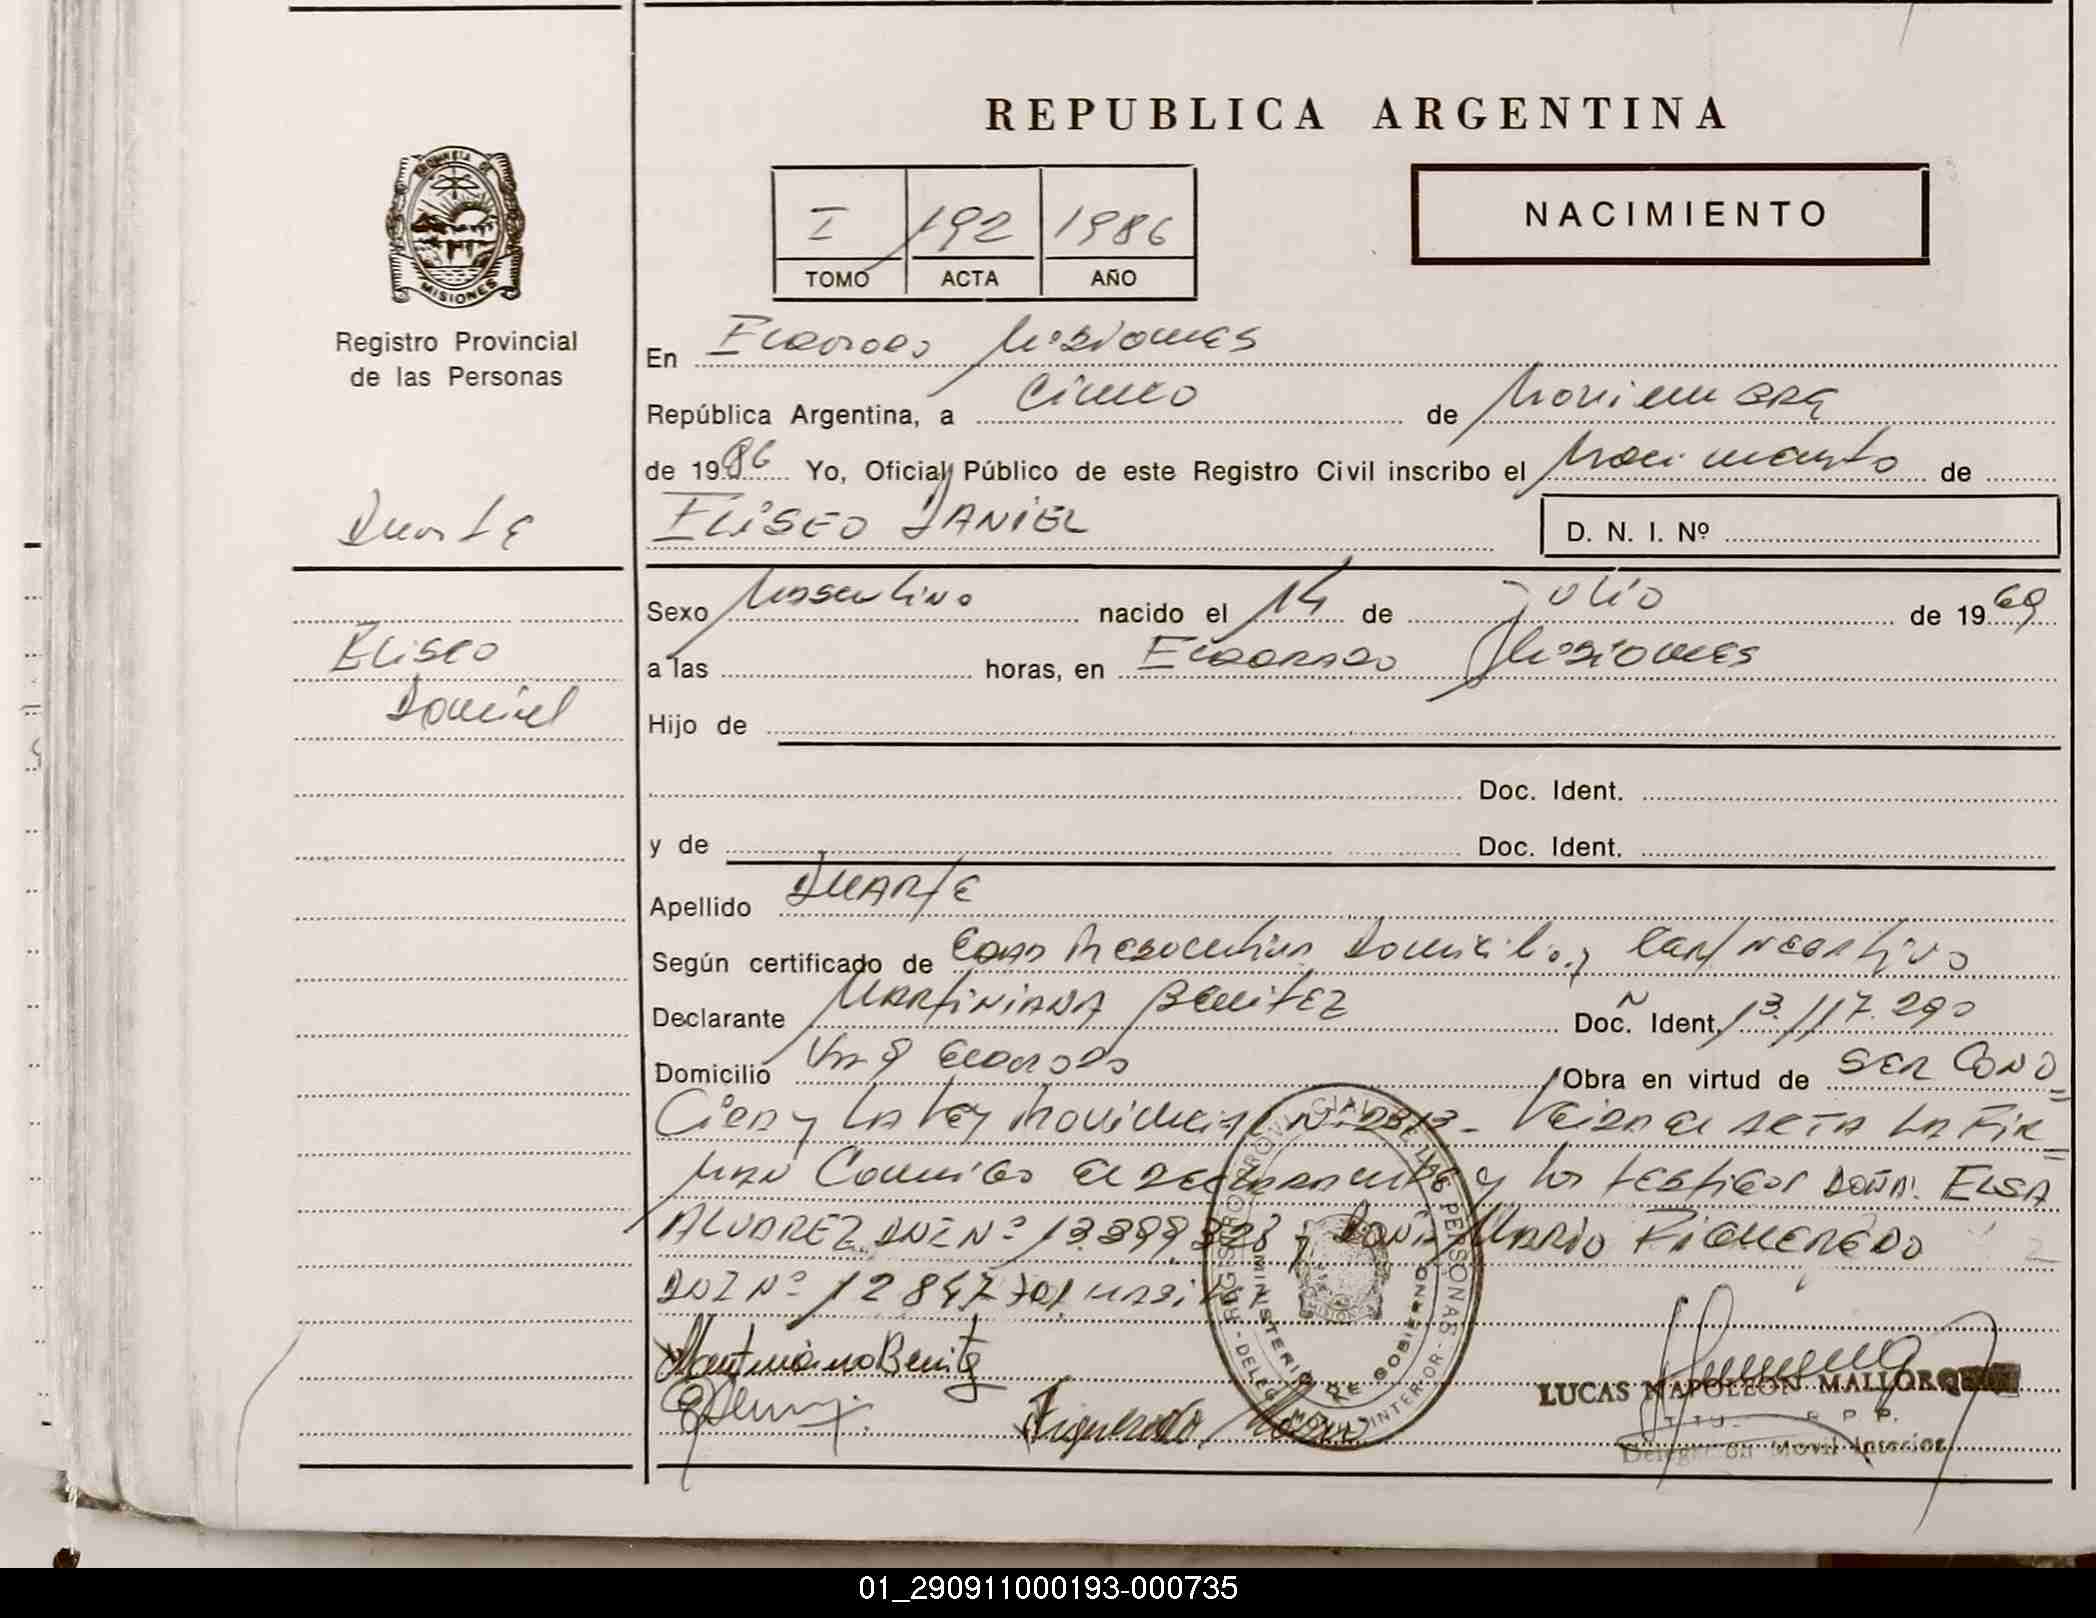 REPUBLICA ARGENTINA
I 192 1986
TOMO ACTA AÑO
NACIMIENTO
MISIONES
Registro Provincial
de las Personas
Duarte
Eliseo
Daniel
En Eldorado Misiones
República Argentina, a Cinco de Noviembre
de 1986 Yo, Oficial Público de este Registro Civil inscribo el Nacimiento de
ELISEO DANIEL D. N. I. Nº
Sexo Masculino nacido el 14 de Julio de 1969
a las horas, en Eldorado Misiones
Hijo de
Doc. Ident.
y de Doc. Ident.
Apellido DUARTE
Según certificado de Domicilio y Cert Negativo
Declarante MARTINIANA BENITEZ Doc. Ident. 13.117.290
Domicilio Eldorado Obra en virtud de SER CONO=
Cida y La Ley Provincial Nº 2313 - Leida el ACTA LA FIR=
MAN Conmigo el declarante y los testigos DOÑA: ELSA
ALVAREZ DNI Nº 13.399.323 y MARIO FIGUEREDO
DNI Nº 12847701
Martiniana Benitez
Figueredo Mario
REGISTRO PROVINCIAL DE LAS PERSONAS
MINISTERIO DE GOBIERNO
DELEG. MOVIL INTERIOR
LUCAS NAPOLEON MALLORQUIN
R. P. P.
Delegación Movil Interior
01_290911000193-000735